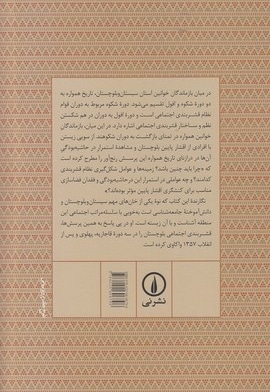 در میان بازماندگان خوانین استان سیستان‌وبلوچستان، تاریخ همواره به
دو دورهٔ شکوه و افول تقسیم می‌شود. دورهٔ شکوه مربوط به دوران قوام
نظام قشربندی اجتماعی است و دورهٔ افول به دوران در هم شکستن
نظم و ساختار قشربندی اجتماعی اشاره دارد. در این میان، بازماندگان
خوانین همواره در تمنای بازگشت به دوران شکوهند. از سویی زیستن
با افرادی از اقشار پایین بلوچستان و مشاهدهٔ استمرار در حاشیه‌بودگی
آن‌ها در درازنای تاریخ همواره این پرسش رنج‌آور را مطرح کرده است
که «چرا باید چنین باشد؟ زمینه‌ها و عوامل شکل‌گیری نظام قشربندی
کدامند؟ و چه عواملی در استمرار این درحاشیه‌بودگی و فقدان فضاسازی
مناسب برای کنشگری اقشار پایین مؤثر بوده‌اند؟»
نگارندهٔ این کتاب که نوهٔ یکی از خان‌های مهم سیستان‌وبلوچستان و
دانش‌آموختهٔ جامعه‌شناسی است به‌خوبی با سلسله‌مراتب اجتماعی این
منطقه آشناست و با آن زیسته است. او در پی پاسخ به همین پرسش‌ها،
قشربندی اجتماعی بلوچستان را در سه دورهٔ قاجاریه، پهلوی و پس از
انقلاب ۱۳۵۷ واکاوی کرده است.
نشرنی